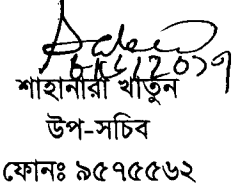 শাহানারা খাতুন
উপ-সচিব
ফোনঃ ৯৫৭৫৫৬২